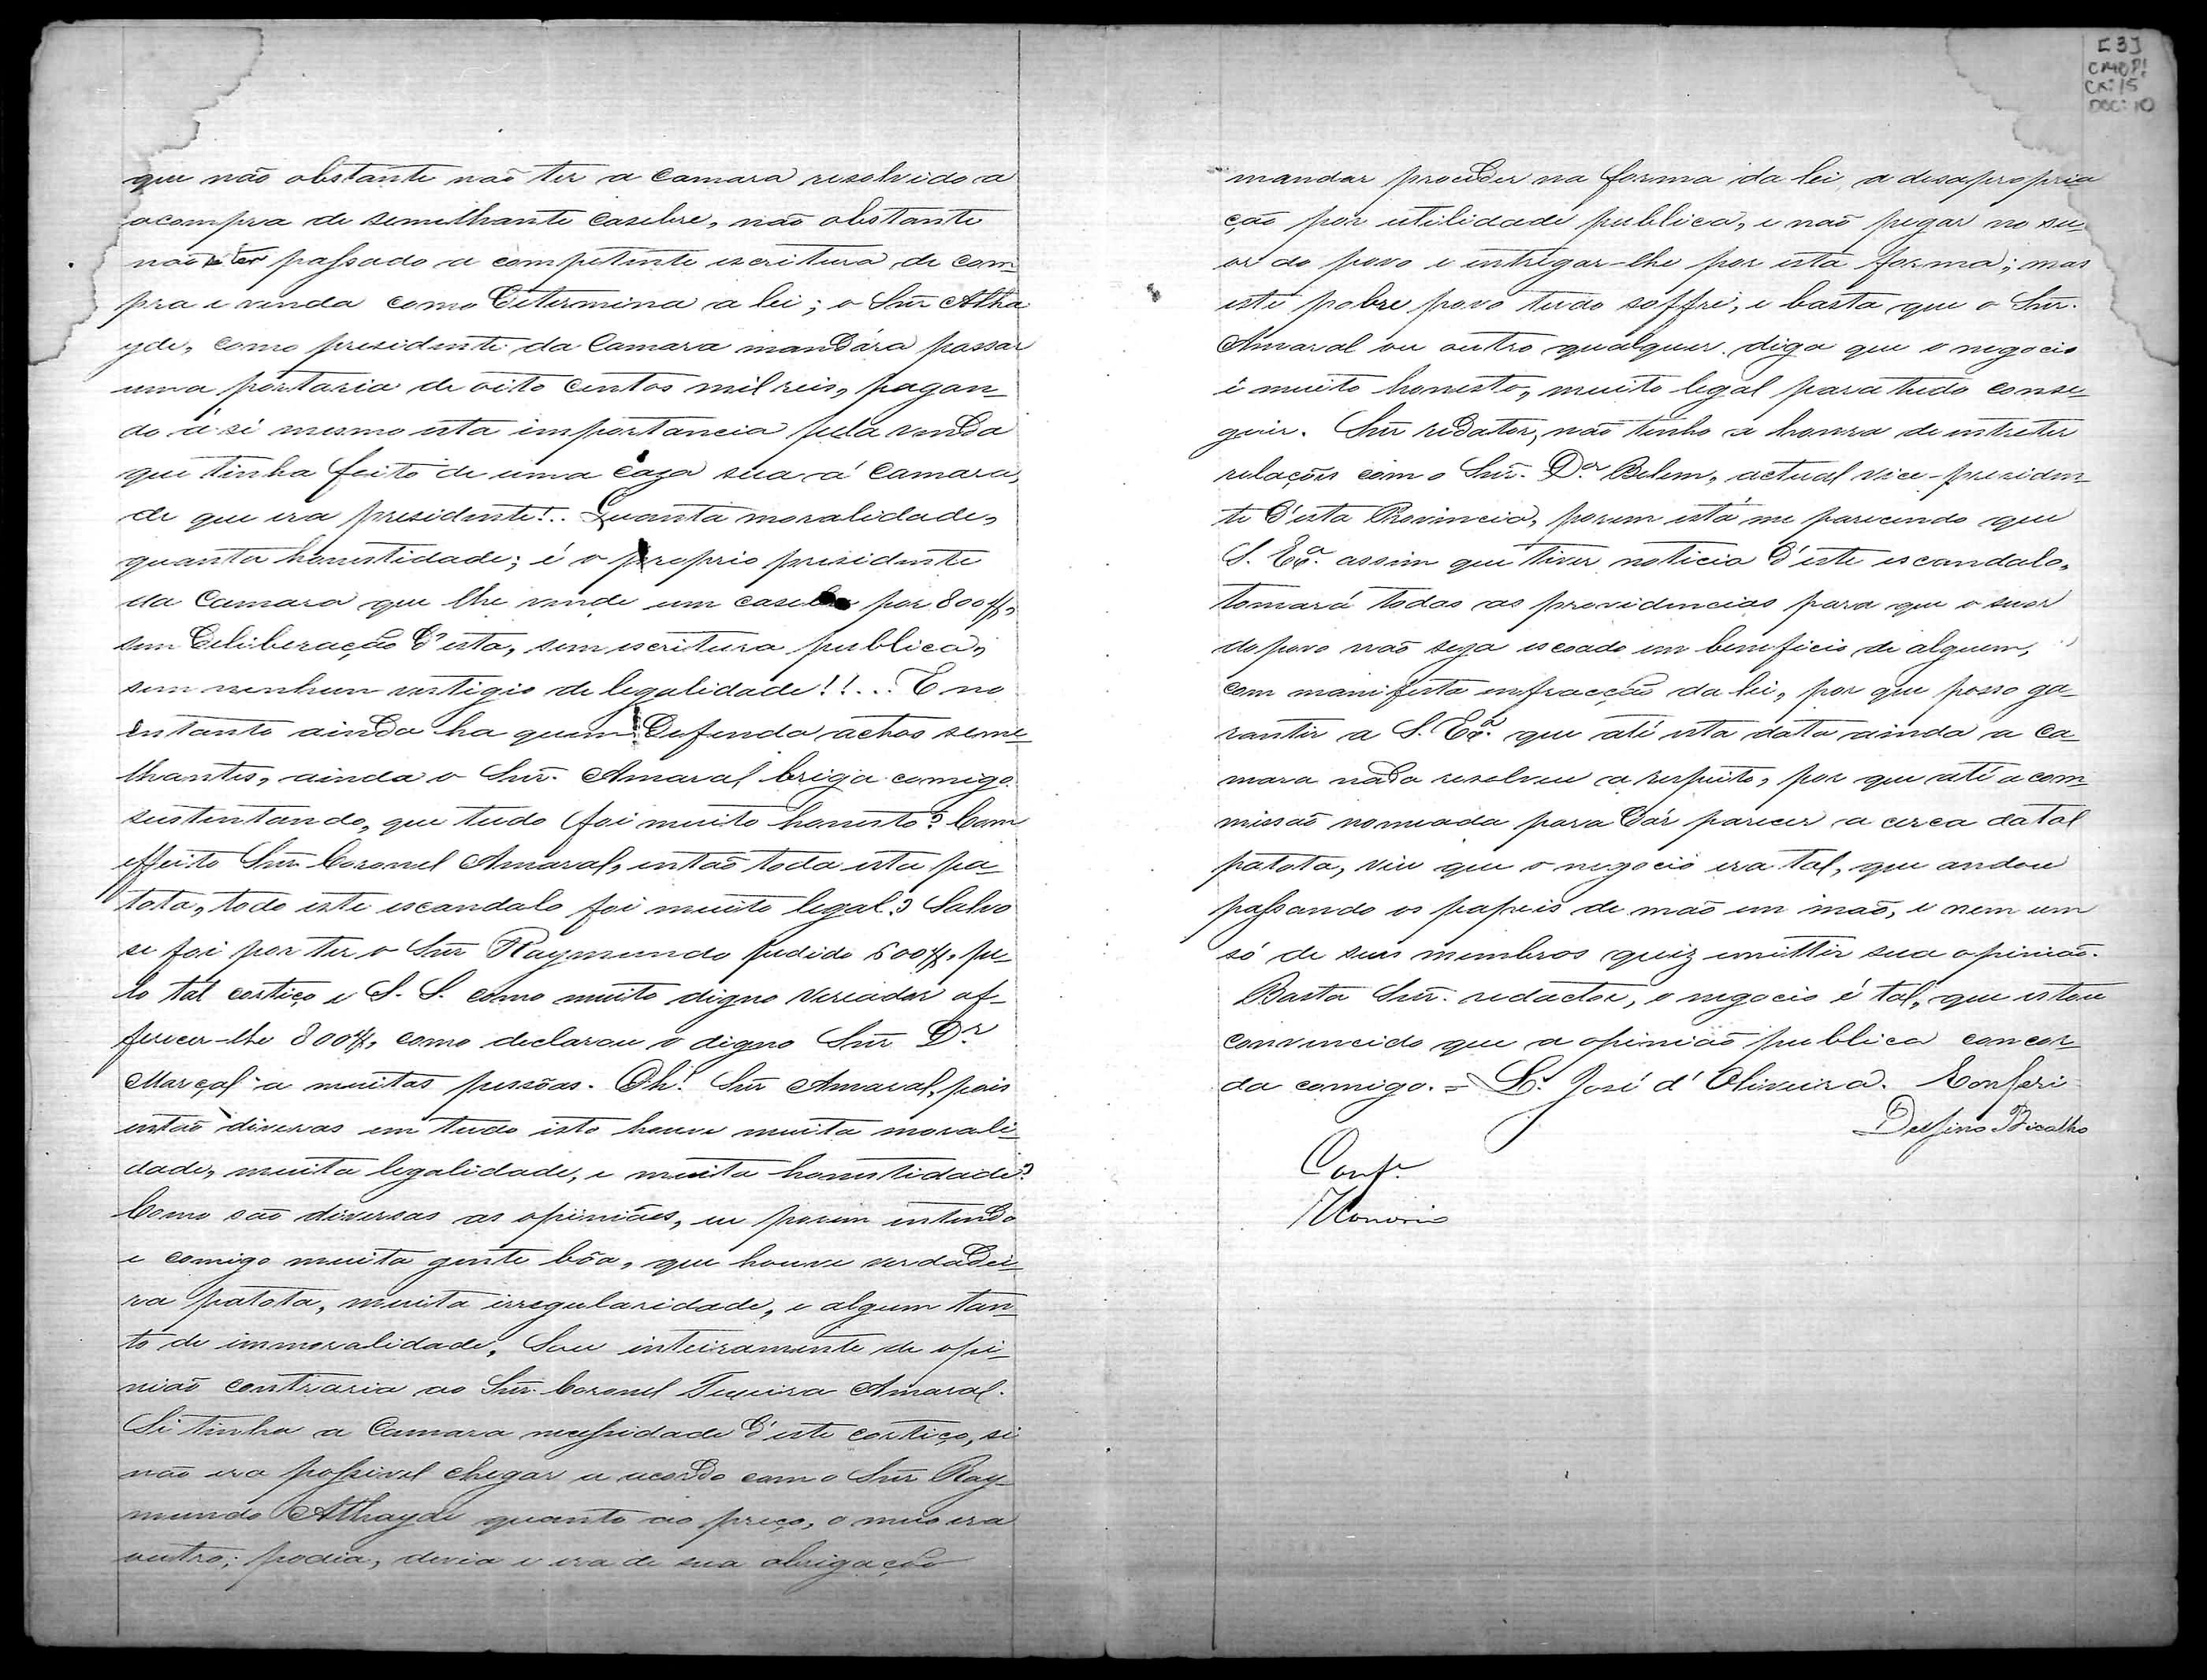 que não obstante não ter a Camara resolvido a
acompra de semilhante casebre, não obstante
não ter passado a competente escritura de com-
pra e venda como determina a lei; o Snr Atha
yde, como presidente da Camara mandára passar
uma portaria de oito centos mil reis, pagan-
do á si mesmo esta importancia pela venda
que tinha feito de uma caza sua á Camara,
de que era presidente!.. Quanta moralidade,
quanta honestidade; é o proprio presidente
da Camara que lhe vende um casebre por 800$,
sem deliberação d'esta, sem escritura publica,
sem nenhum vestigio de legalidade!!... E no
entanto ainda ha quem defenda actos seme-
lhantes, ainda o Snr. Amaral briga comigo
sustentando, que tudo foi muito honesto? Com
effeito Snr. Coronel Amaral, então toda esta pa-
tota, todo este escandalo foi muito legal? Salvo
se foi por ter o Snr Raymundo pedido 600$, pe-
lo tal cortiço e S. S. como muito digno vereador of-
ferecer-lhe 800$, como declarou o digno Snr Dr
Marçal a muitas pessôas. Oh! Snr Amaral, pois
então diveras em tudo isto houve muita morali-
dade, muita legalidade, e muita honestidade?
Como são diversas as opiniões, eu porem entendo
e comigo muita gente bôa, que houve verdadei-
ra patota, muita irregularidade, e algum tan-
to de immoralidade. Sou inteiramente de opi-
nião contraria ao Snr. Coronel Teixeira Amaral.
Si tinha a Camara necessidade d'este cortiço, si
não era possivel chegar a acordo com o Snr Ray-
mundo Athayde quanto ao preço, o meio era
outro; podia, devia e era de sua obrigação
[3]
CMOP!
Cx: 15
DOC: 10
mandar proceder na forma da lei, a desapropria
ção por utilidade publica, e não pegar no su-
or do povo e entregar-lhe por esta forma; mas
este pobre povo tudo soffre, e basta que o Snr.
Amaral ou outro qualquer diga que o negocio
é muito honesto, muito legal para tudo conse-
guir. Snr redator, não tenho a honra de entreter
relações com o Snr. Dor. Belem, actual vice-presiden-
te d'esta Provincia, porem está me parecendo que
S. Exa. assim que tiver noticia d'este escandalo,
tomará todas as providencias para que o suor
do povo não seja escoado em beneficio de alguem,
com manifesta infracção da lei, por que posso ga-
rantir a S. Exa. que até esta data ainda a Ca-
mara nada resolveu a respeito, por que até a com-
missão nomeada para dár parecer a cerca da tal
patota, viu que o negocio era tal, que andou
passando os papeis de mão em mão, e nem um
só de seus membros quiz emittir sua opinião.
Basta Snr. redactor, o negocio é tal, que estou
convencido que a opinião publica concor-
da comigo. = L. José d'Oliveira. Conferi
Delfino Bicalho
Confe.
Honorio